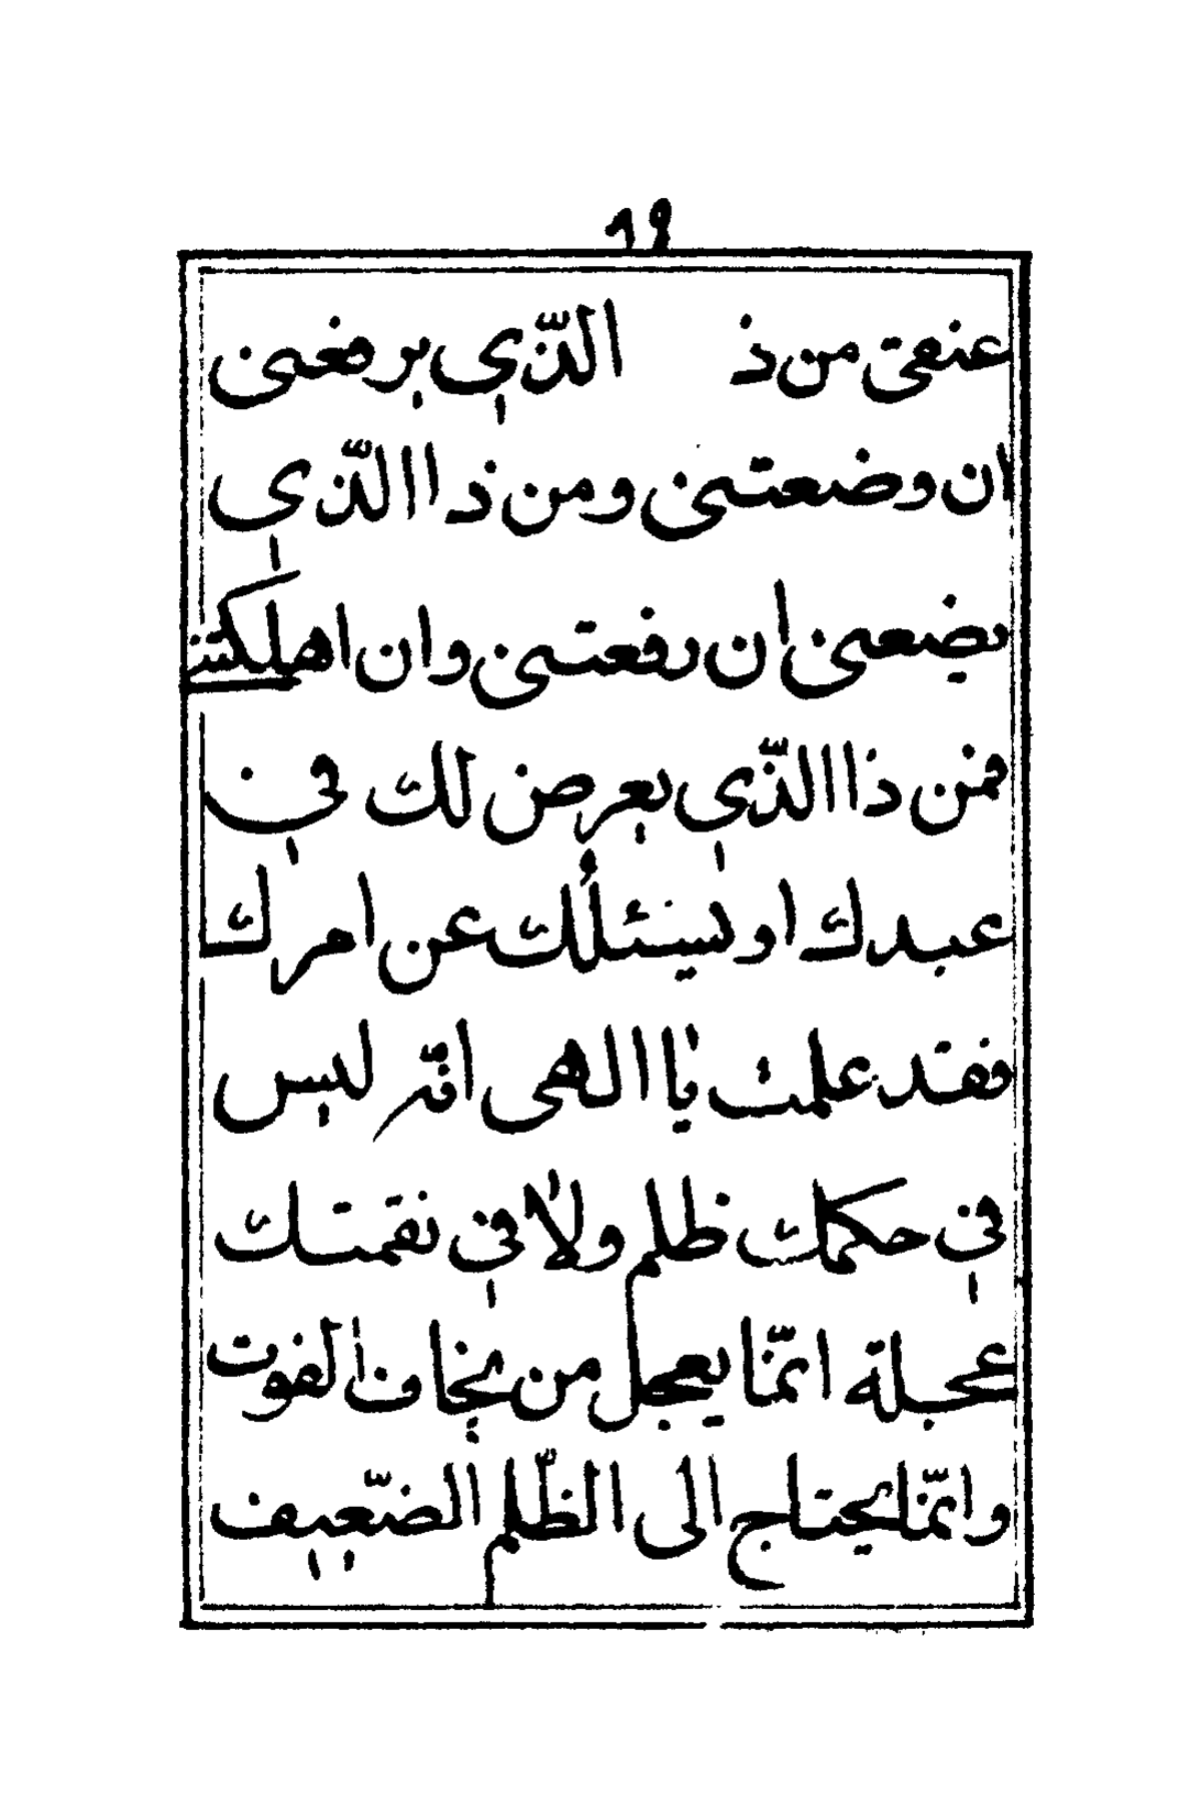 ٦٩
عنقى من ذ الّذي يرفعنى
ان وضعتنى ومن ذا الّذي
يضعنى ان رفعتنى وان اهلكتنى
فمن ذا الّذي يعرض لك في
عبدك او يسئلك عن امرك
فقد علمت يا الهى انّه ليس
في حكمك ظلم ولا في نقمتك
عجلة انّما يعجل من يخاف الفوت
وانّما يحتاج الى الظّلم الضّعيف